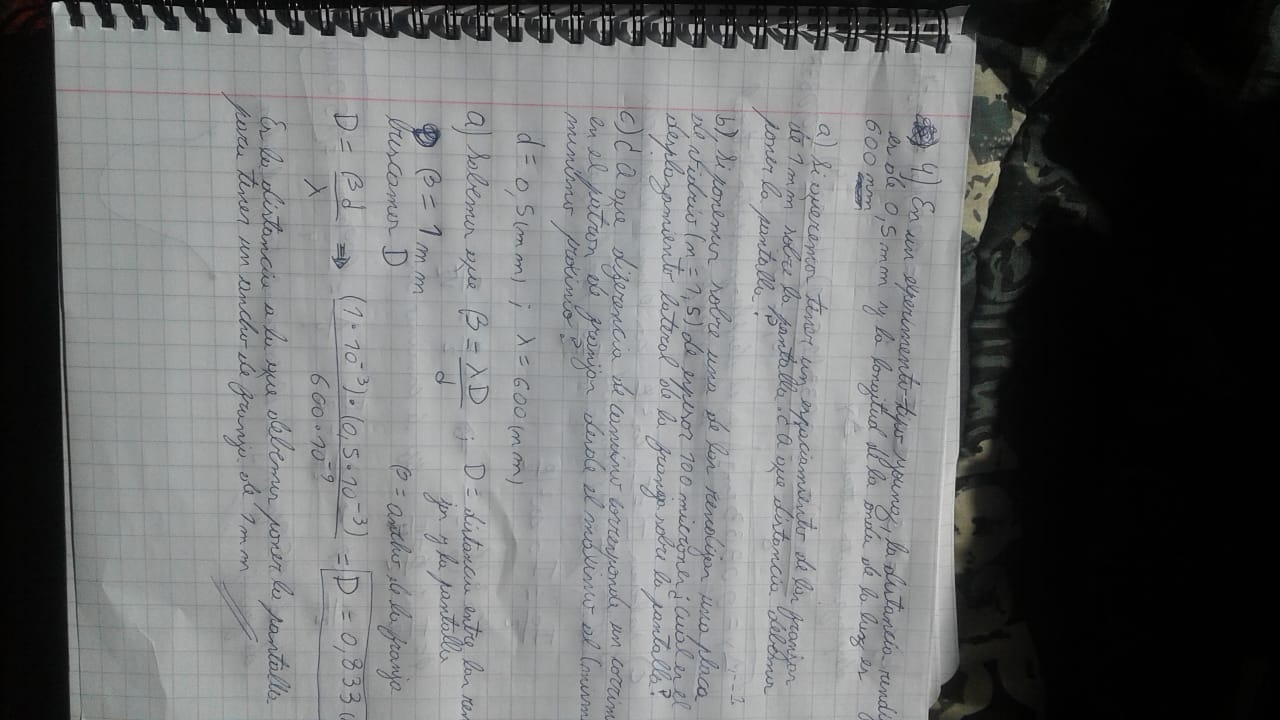 4) En un experimento tipo young, la distancia rendi
es de 0,5mm y la longitud de la onda de la luz es
600nm
a) Si queremos tener un espaciamiento de las franjas
de 1mm sobre la pantalla ¿a que distancia debemos
poner la pantalla?
b) Si ponemos sobre una de las rendijas una placa
de vidrio (n=1,5) de espesor 10 micrones ¿cual es el
desplazamiento lateral de la franja sobre la pantalla?
c) ¿A que diferencia de camino corresponde un corrim
en el patron de franjas desde el máximo al
mínimo próximo?
d = 0,5(mm) ; λ = 600(nm)
a) Sabemos que β = λD/d ; D = distancia entre las ren
jas y la pantalla
β = 1mm β = ancho de la franja
buscamos D
D = βd/λ ⇒ (1·10⁻³)·(0,5·10⁻³)/600·10⁻⁹ = D = 0,833
Es la distancia a la que debemos poner la pantalla
para tener un ancho de franja de 1mm